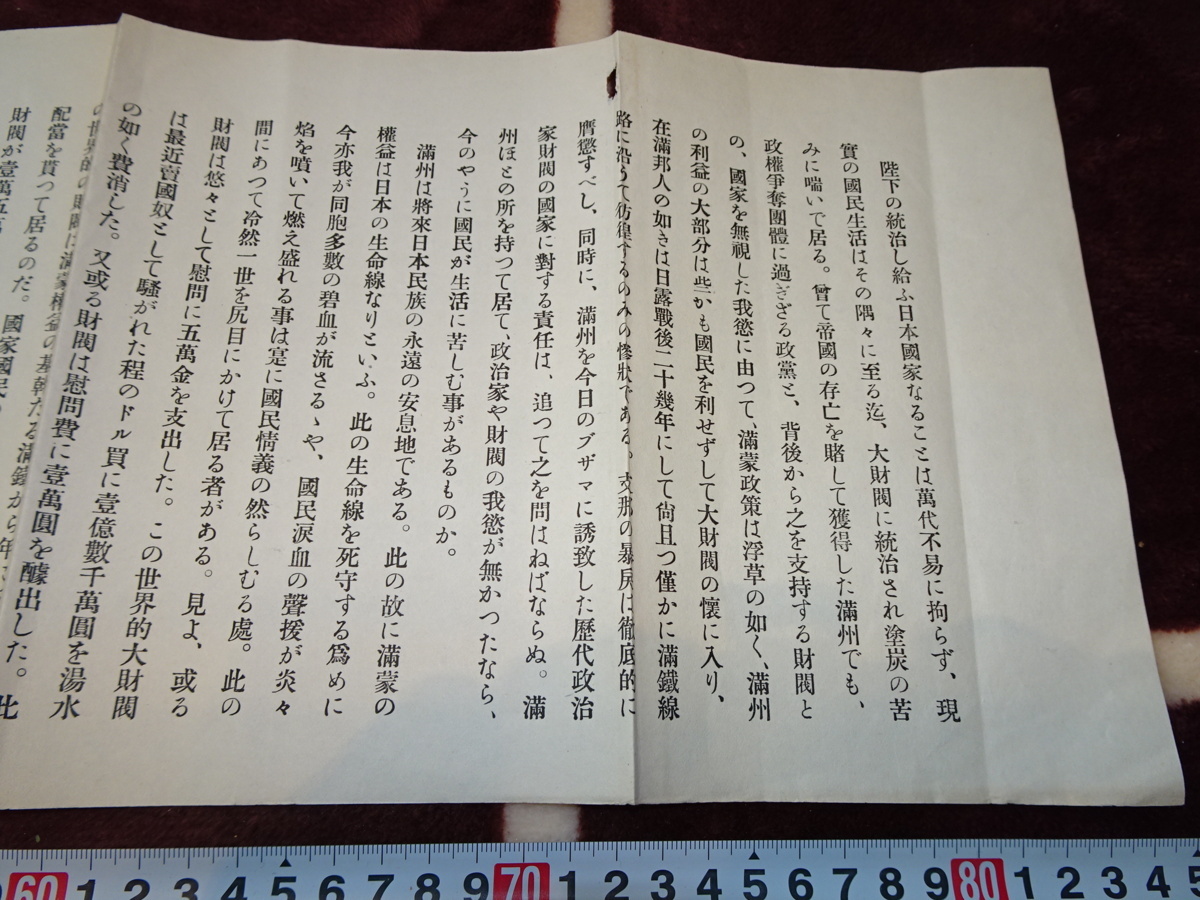 陛下の統治し給ふ日本國家なることは萬代不易に拘らず、現
實の國民生活はその隅々に至る迄、大財閥に統治され塗炭の苦
みに喘いで居る。曾て帝國の存亡を賭して獲得した滿州でも、
政權爭奪團體に過ぎざる政黨と、背後から之を支持する財閥と
の、國家を無視した我慾に由つて、滿蒙政策は浮草の如く、滿州
の利益の大部分は些かも國民を利せずして大財閥の懷に入り、
在滿邦人の如きは日露戰後二十幾年にして尙且つ僅かに滿鐵線
路に沿うて彷徨するのみの慘狀である。支那の暴戾は徹底的に
膺懲すべし、同時に、滿州を今日のブザマに誘致した歷代政治
家財閥の國家に對する責任は、追つて之を問はねばならぬ。滿
州ほとの所を持つて居て、政治家や財閥の我慾が無かつたなら、
今のやうに國民が生活に苦しむ事があるものか。
滿州は將來日本民族の永遠の安息地である。此の故に滿蒙の
權益は日本の生命線なりといふ。此の生命線を死守する爲めに
今亦我が同胞多數の碧血が流さるゝや、國民淚血の聲援が炎々
焰を噴いて燃え盛れる事は寔に國民情義の然らしむる處。此の
間にあつて冷然一世を尻目にかけて居る者がある。見よ、或る
財閥は悠々として慰問に五萬金を支出した。この世界的大財閥
は最近賣國奴として騷がれた程のドル買に壹億數千萬圓を湯水
の如く費消した。又或る財閥は慰問費に壹萬圓を醵出した。此
の世界的の財閥は滿蒙權益の基幹たる滿鐵から年
配當を貰つて居るのだ。國家國民の
財閥が壹萬五萬
60 1 2 3 4 5 6 7 8 9 70 1 2 3 4 5 6 7 8 9 80 1 2 3 4 5